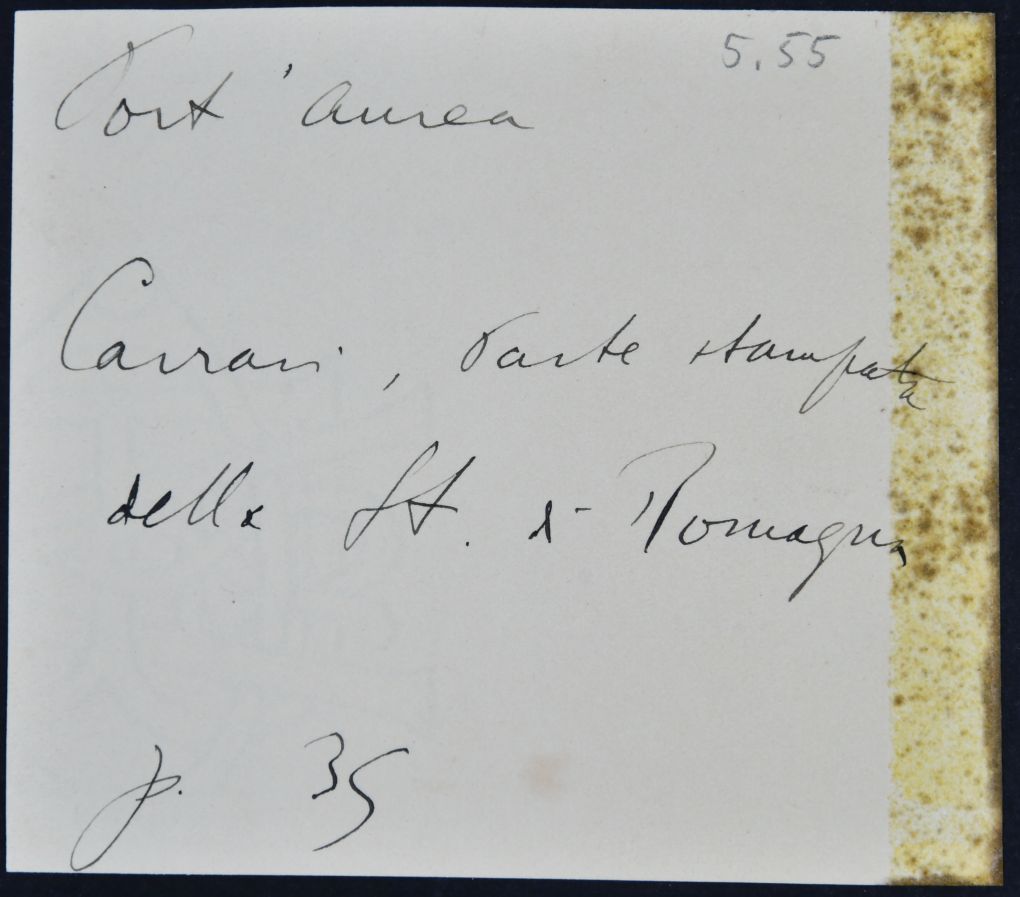 5.55
Port'aurea
Carrari, Parte stampata
della St. di Romagna
p. 35